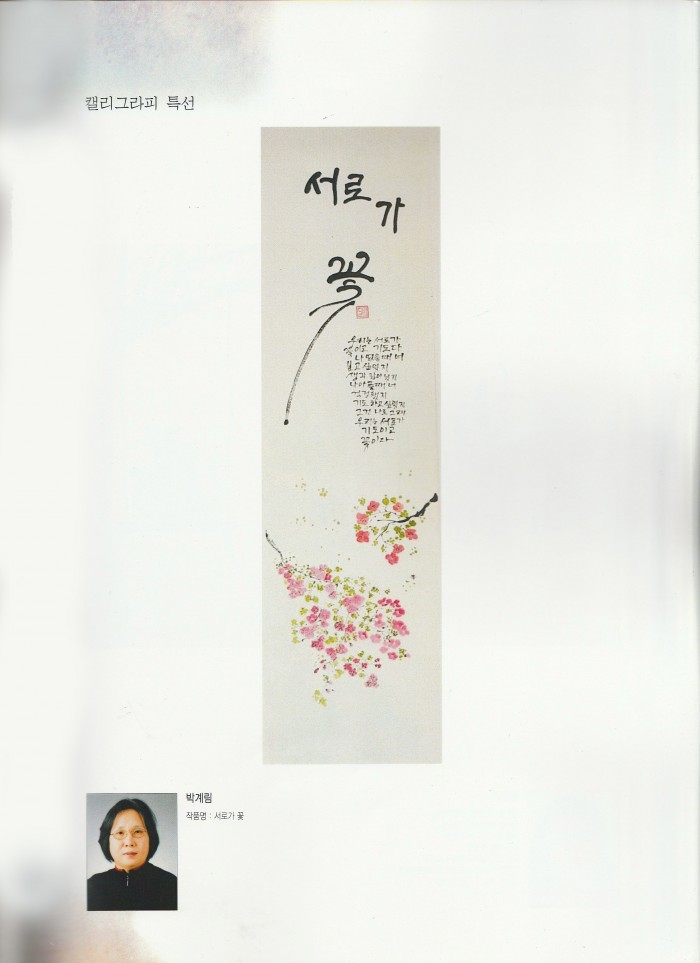 캘리그라피 특선
서로가
꽃
우리는 서로가
꽃이고 기도다
나 없을 때 너
보고 싶었지
생각 많이 났지
나 아플 때 너
걱정됐지
기도하고 싶었지
그건 나도 그래
우리는 서로가
기도이고
꽃이다
박계림
작품명 : 서로가 꽃